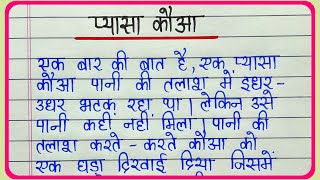 प्यासा कौआ
एक बार की बात है, एक प्यासा
कौआ पानी की तलाश में इधर-
उधर भटक रहा था। लेकिन उसे
पानी कहीं नहीं मिला। पानी की
तलाश करते-करते कौआ को
एक घड़ा दिखाई दिया जिसमें